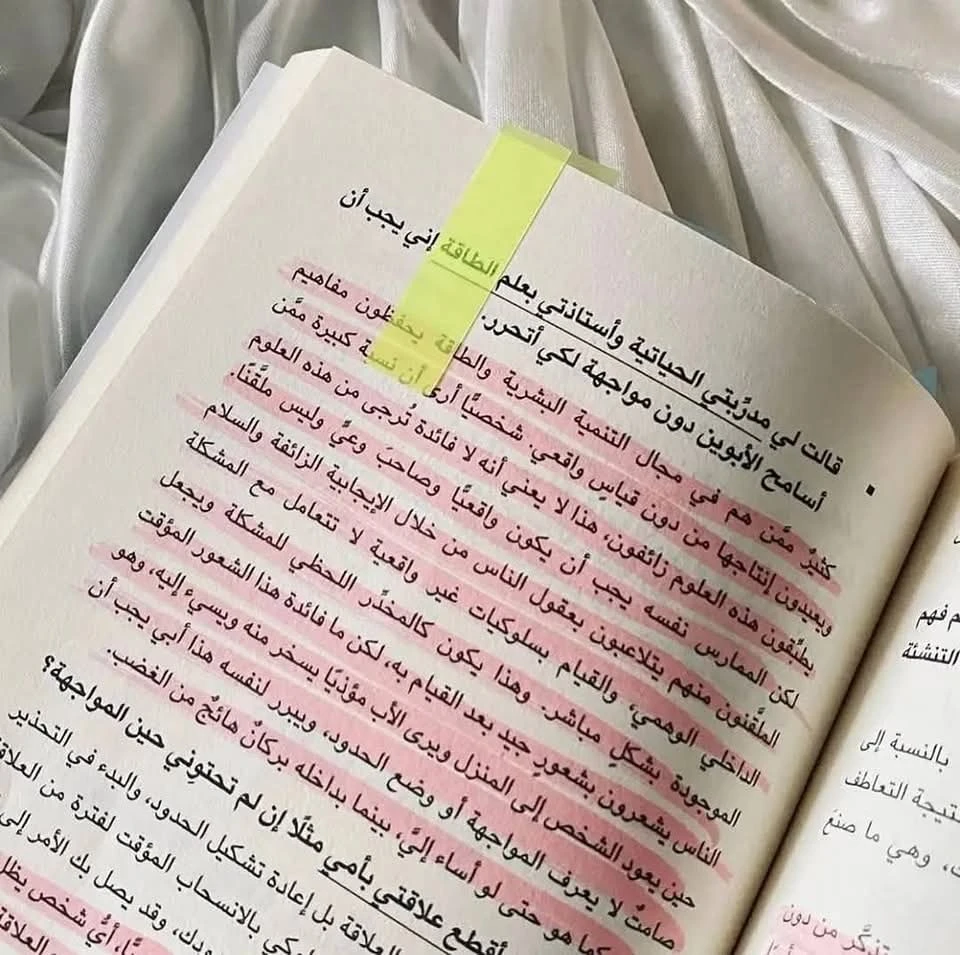 ▪ قالت لي مدرِّبتي الحياتية وأستاذتي بعلم الطاقة إني يجب أن
أسامح الأبوين دون مواجهة لكي أتحرر.
كثيرٌ ممَّن هم في مجال التنمية البشرية والطاقة يحفظون مفاهيم
ويعيدون إنتاجها من دون قياسٍ واقعي. شخصيًّا أرى أن نسبة كبيرة ممَّن
يطبِّقون هذه العلوم زائفون، هذا لا يعني أنه لا فائدة تُرجى من هذه العلوم
لكن الممارس نفسه يجب أن يكون واقعيًّا وصاحبَ وعيٍّ وليس ملقَّنًا.
الملقَّنون منهم يتلاعبون بعقول الناس من خلال الإيجابية الزائفة والسلام
الداخلي الوهمي، والقيام بسلوكيات غير واقعية لا تتعامل مع المشكلة
الموجودة بشكلٍ مباشر. وهذا يكون كالمخدَّر اللحظي للمشكلة ويجعل
الناس يشعرون بشعورٍ جيد بعد القيام به، لكن ما فائدة هذا الشعور المؤقت
حين يعود الشخص إلى المنزل ويرى الأب مؤذيًا يسخر منه ويسيء إليه، وهو
صامتٌ لا يعرف المواجهة أو وضع الحدود، ويبرر لنفسه هذا أبي يجب أن
كما هو حتى لو أساء إليَّ، بينما بداخله بركانٌ هائجٌ من الغضب.
أقطع علاقتي بأمي مثلًا إن لم تحتوني حين المواجهة؟
العلاقة بل إعادة تشكيل الحدود، والبدء في التحذير
بالانسحاب المؤقت لفترة من
وقد يصل بك الأمر إلى
أيُّ شخص يظل
م فهم
التنشئة
بالنسبة إلى
نتيجة التعاطف
وهي ما صنعَ
تذكَّر من دون